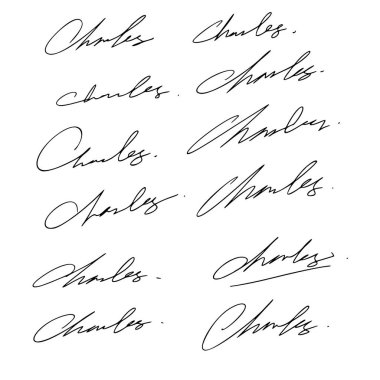 Charles Charles.
Charles. Charles.
Charles. Charles.
Charles. Charles.
Charles. Charles.
Charles. Charles.